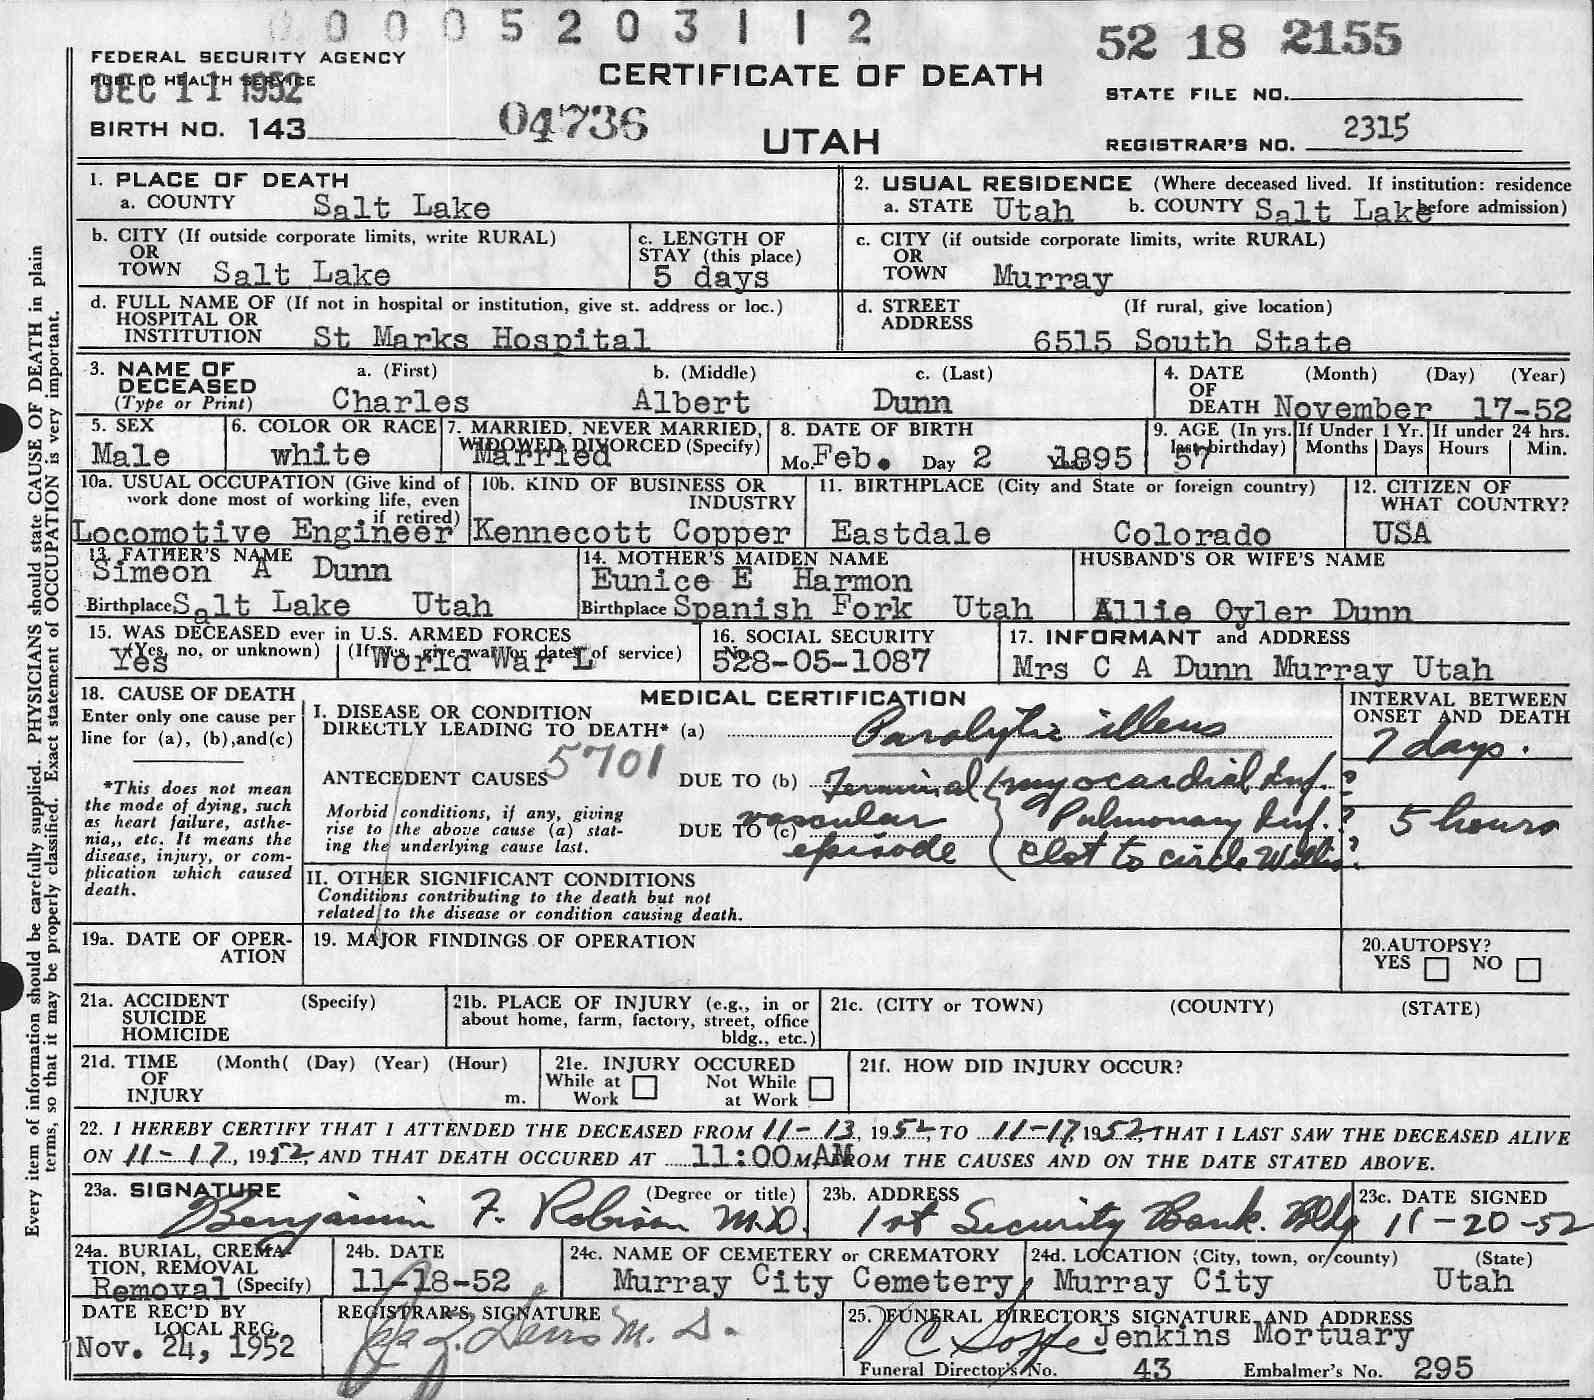 0 0 0 5 2 0 3 1 1 2
52 18 2155
FEDERAL SECURITY AGENCY
PUBLIC HEALTH SERVICE
DEC 11 1952
CERTIFICATE OF DEATH
STATE FILE NO.
BIRTH NO. 143 04736
UTAH
REGISTRAR'S NO. 2315
1. PLACE OF DEATH
a. COUNTY Salt Lake
2. USUAL RESIDENCE (Where deceased lived. If institution: residence before admission)
a. STATE Utah b. COUNTY Salt Lake
b. CITY (If outside corporate limits, write RURAL)
OR
TOWN Salt Lake
c. LENGTH OF
STAY (this place)
5 days
c. CITY (if outside corporate limits, write RURAL)
OR
TOWN Murray
d. FULL NAME OF (If not in hospital or institution, give st. address or loc.)
HOSPITAL OR
INSTITUTION St Marks Hospital
d. STREET (If rural, give location)
ADDRESS
6515 South State
3. NAME OF
DECEASED
(Type or Print)
a. (First) b. (Middle) c. (Last)
Charles Albert Dunn
4. DATE (Month) (Day) (Year)
OF
DEATH November 17-52
5. SEX
Male
6. COLOR OR RACE
white
7. MARRIED, NEVER MARRIED,
WIDOWED, DIVORCED (Specify)
Married
8. DATE OF BIRTH
Mo. Feb. Day 2 Year 1895
9. AGE (In yrs. last birthday)
57
If Under 1 Yr.
Months Days
If under 24 hrs.
Hours Min.
10a. USUAL OCCUPATION (Give kind of
work done most of working life, even
if retired)
Locomotive Engineer
10b. KIND OF BUSINESS OR
INDUSTRY
Kennecott Copper
11. BIRTHPLACE (City and State or foreign country)
Eastdale Colorado
12. CITIZEN OF
WHAT COUNTRY?
USA
13. FATHER'S NAME
Simeon A Dunn
Birthplace Salt Lake Utah
14. MOTHER'S MAIDEN NAME
Eunice E Harmon
Birthplace Spanish Fork Utah
HUSBAND'S OR WIFE'S NAME
Allie Oyler Dunn
15. WAS DECEASED ever in U.S. ARMED FORCES
(Yes, no, or unknown) (If yes, give war or dates of service)
Yes World War L
16. SOCIAL SECURITY
No.
528-05-1087
17. INFORMANT and ADDRESS
Mrs C A Dunn Murray Utah
18. CAUSE OF DEATH
Enter only one cause per
line for (a), (b), and (c)
*This does not mean
the mode of dying, such
as heart failure, asthe-
nia,, etc. It means the
disease, injury, or com-
plication which caused
death.
MEDICAL CERTIFICATION
I. DISEASE OR CONDITION
DIRECTLY LEADING TO DEATH* (a) Paralytic illeus
5701
ANTECEDENT CAUSES
DUE TO (b) Terminal myocardial Inf. ?
Morbid conditions, if any, giving
rise to the above cause (a) stat-
ing the underlying cause last.
DUE TO (c) vascular Pulmonary Inf. ?
episode Clot to circle Willis?
INTERVAL BETWEEN
ONSET AND DEATH
7 days.
5 hours
II. OTHER SIGNIFICANT CONDITIONS
Conditions contributing to the death but not
related to the disease or condition causing death.
19a. DATE OF OPER-
ATION
19. MAJOR FINDINGS OF OPERATION
20. AUTOPSY?
YES NO
21a. ACCIDENT (Specify)
SUICIDE
HOMICIDE
21b. PLACE OF INJURY (e.g., in or
about home, farm, factory, street, office
bldg., etc.)
21c. (CITY or TOWN) (COUNTY) (STATE)
21d. TIME (Month( (Day) (Year) (Hour)
OF
INJURY m.
21e. INJURY OCCURED
While at Work Not While at Work
21f. HOW DID INJURY OCCUR?
22. I HEREBY CERTIFY THAT I ATTENDED THE DECEASED FROM 11-13, 1952, TO 11-17, 1952, THAT I LAST SAW THE DECEASED ALIVE
ON 11-17, 1952, AND THAT DEATH OCCURED AT 11:00 M, AM FROM THE CAUSES AND ON THE DATE STATED ABOVE.
23a. SIGNATURE (Degree or title)
Benjamin F. Robison M.D.
23b. ADDRESS
1st Security Bank. Bldg
23c. DATE SIGNED
11-20-52
24a. BURIAL, CREMA-
TION, REMOVAL
(Specify)
Removal
24b. DATE
11-18-52
24c. NAME OF CEMETERY or CREMATORY
Murray City Cemetery,
24d. LOCATION (City, town, or county) (State)
Murray City Utah
DATE REC'D BY
LOCAL REG.
Nov. 24, 1952
REGISTRAR'S SIGNATURE
M. D.
25. FUNERAL DIRECTOR'S SIGNATURE AND ADDRESS
Jenkins Mortuary
Funeral Director's No. 43 Embalmer's No. 295
Every item of information should be carefully supplied. PHYSICIANS should state CAUSE OF DEATH in plain
terms, so that it may be properly classified. Exact statement of OCCUPATION is very important.